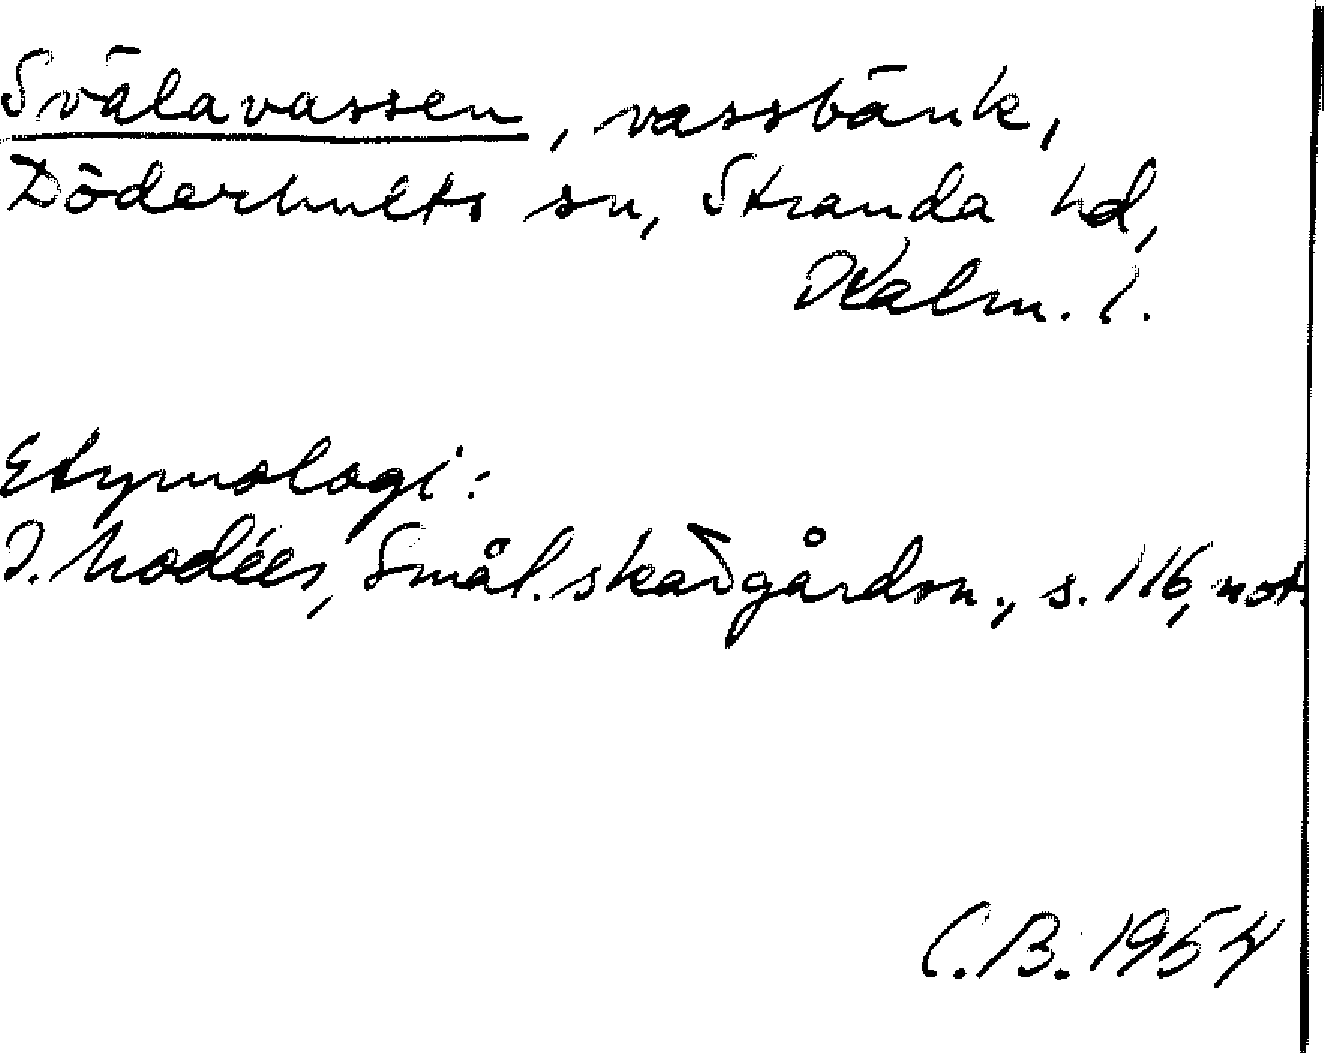 Svälavassen, vassbänk,
Döderhults sn, Stranda hd,
Kalm. l.
Etymologi:
I. Modéer, Smål. skärgårdsn., s. 116, not.
C.B. 1954